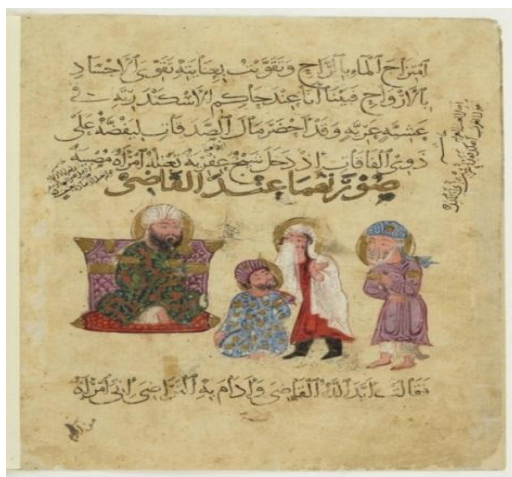 اِمتزاجَ المَاءِ بالرَّاحِ وتقوّيْتُ بعِنَايَتِهِ تقوّيَ الأجْسَادِ
بالأرواحِ فبَيْنَا أنا عِندَ حَاكِمِ الإسْكَندَرِيّةِ في
عَشِيّةٍ عَرِيّةٍ وَقَد أحْضَرَ مَالَ الصّدقاتِ ليَفُضّهُ عَلى
ذوي الفَاقاتِ اِذ دَخل شَيْخ عِفْرِيَة تَعْتِلُهُ اِمْرَأة مُصْبِيَة
صورتهما عند القاضي
فقالت ايّدَ اللهُ القَاضِي وَأدَامَ بِهِ التّراضِي اِنّي اِمْرَأة